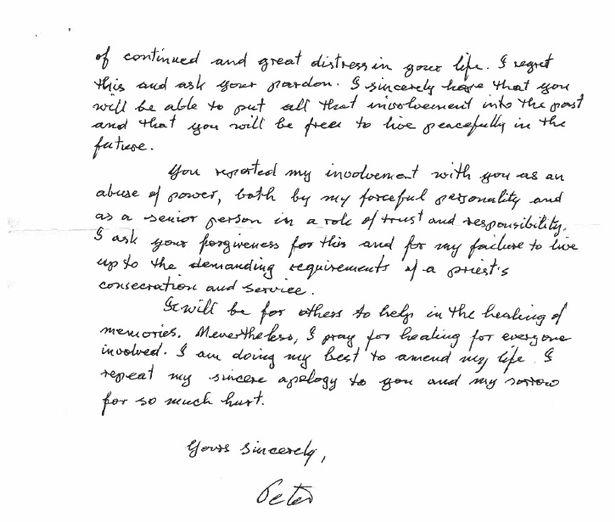 of continued and great distress in your life. I regret
this and ask your pardon. I sincerely hope that you
will be able to put all that involvement into the past
and that you will be free to live peacefully in the
future.
You reported my involvement with you as an
abuse of power, both by my forceful personality and
as a senior person in a role of trust and responsibility.
I ask your forgiveness for this and for my failure to live
up to the demanding requirements of a priest's
consecration and service.
It will be for others to help in the healing of
memories. Nevertheless, I pray for healing for everyone
involved. I am doing my best to amend my life. I
repeat my sincere apology to you and my sorrow
for so much hurt.
Yours sincerely,
Peter